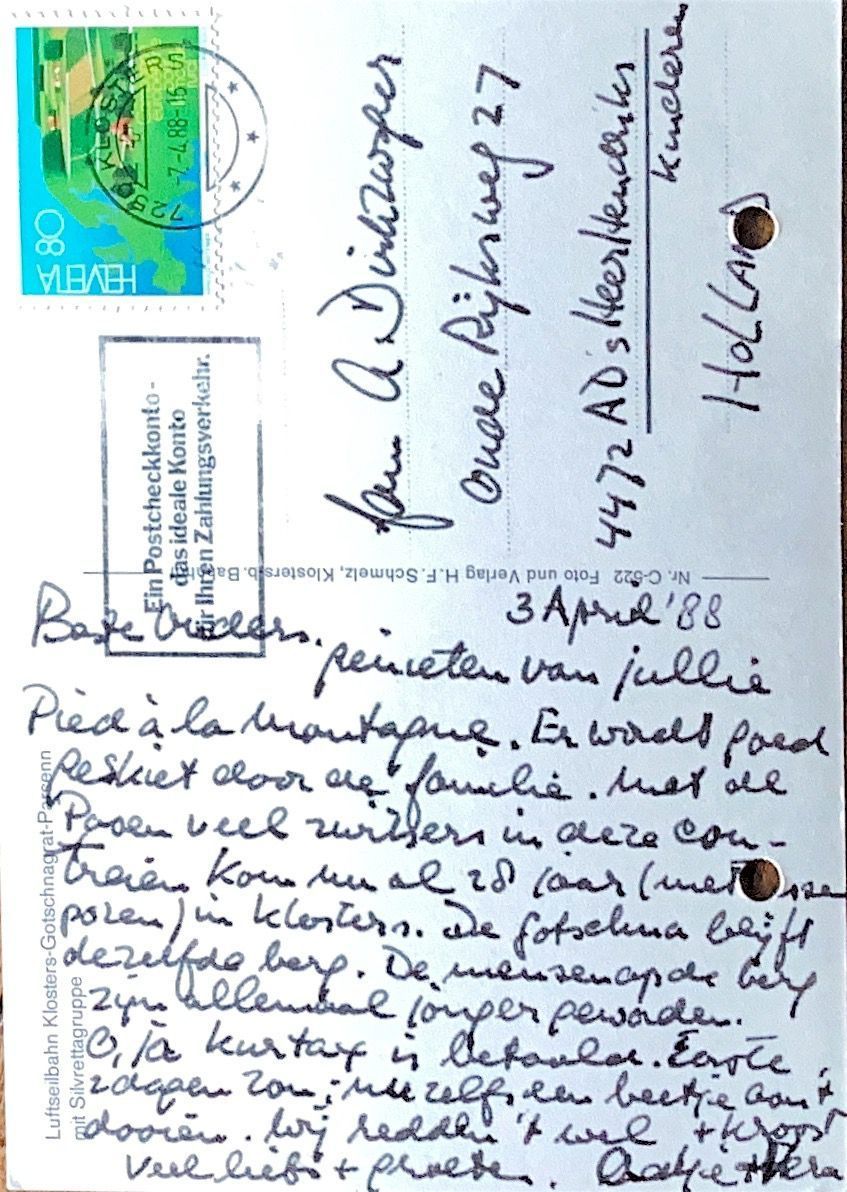 HELVETIA 80
7250 KLOSTERS
-7.-4.88-
Ein Postcheckkonto-
das ideale Konto
für Ihren Zahlungsverkehr.
fam A Dirkzwager
Oude Rijksweg 27
4472 AD 's Heer Hendriks
kinderen
HOLLAND
Nr. C-522 Foto und Verlag H.F. Schmelz, Klosters b. Bahnhof
Luftseilbahn Klosters-Gotschnagrat-Parsenn
mit Silvrettagruppe
3 April '88
Beste Ouders.
genieten van jullie
Pied à la montagne. Er wordt goed
geskiet door de familie. Met de
Pasen veel zwitsers in deze con-
treien. Kom nu al 28 jaar (met
pozen) in Klosters. De Gotschna blijft
dezelfde berg. De mensen op de berg
zijn allemaal jonger geworden.
O, ja kurtax is betaald. Eerste
2 dagen zon, nu zelfs een beetje aan 't
dooien. Wij redden 't wel + kroost
Veel liefs + groeten.